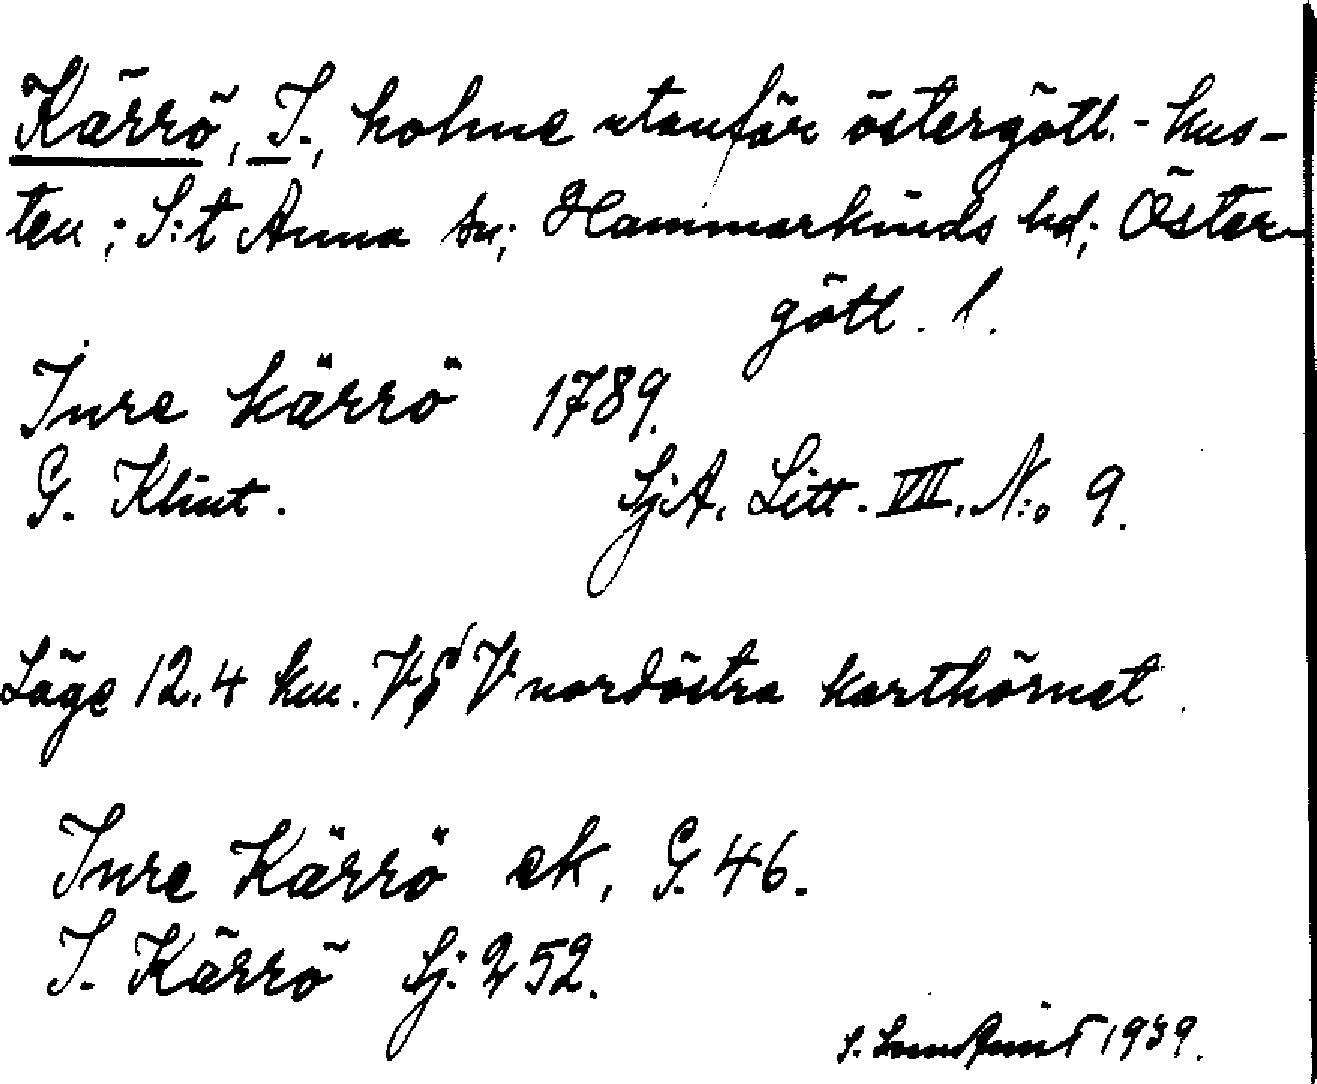 Kärrö, I., holme utanför östergötl.- kus-
ten; S:t Anna sn; Hammarkinds hd; Öster-
götl. l.
Inre Kärrö 1789.
G. Klint. SjA. Litt. VII. N:o 9.
Läge 12.4 km. V V nordöstra karthörnet.
Inre Kärrö ek, G. 46.
I. Kärrö Sj: 252.
S. 1939.